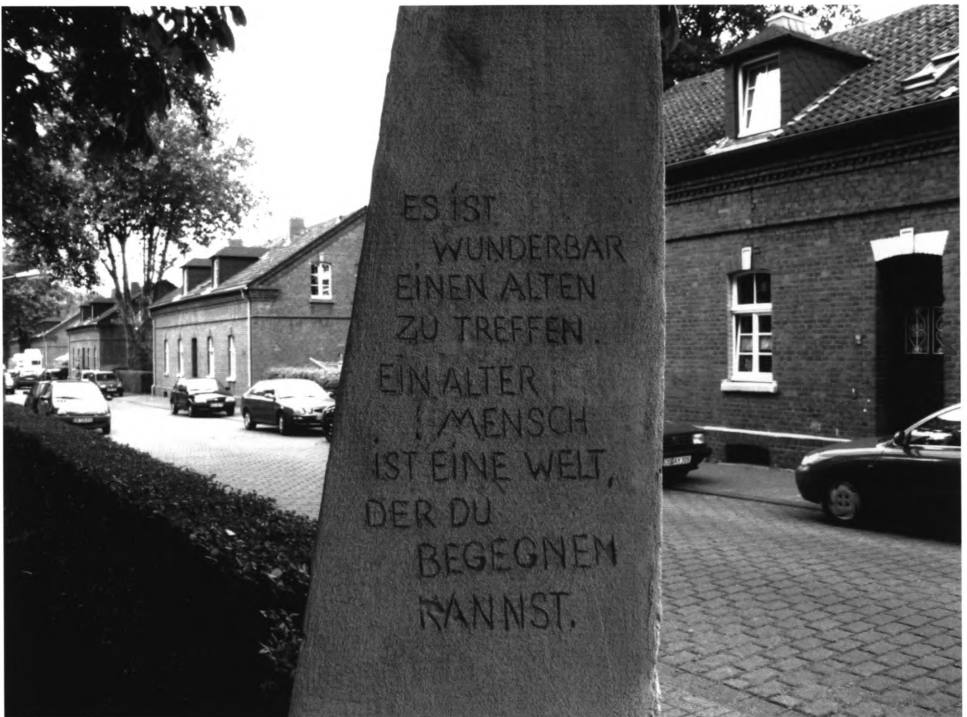 ES IST
WUNDERBAR
EINEN ALTEN
ZU TREFFEN.
EIN ALTER
MENSCH
IST EINE WELT,
DER DU
BEGEGNEN
KANNST.